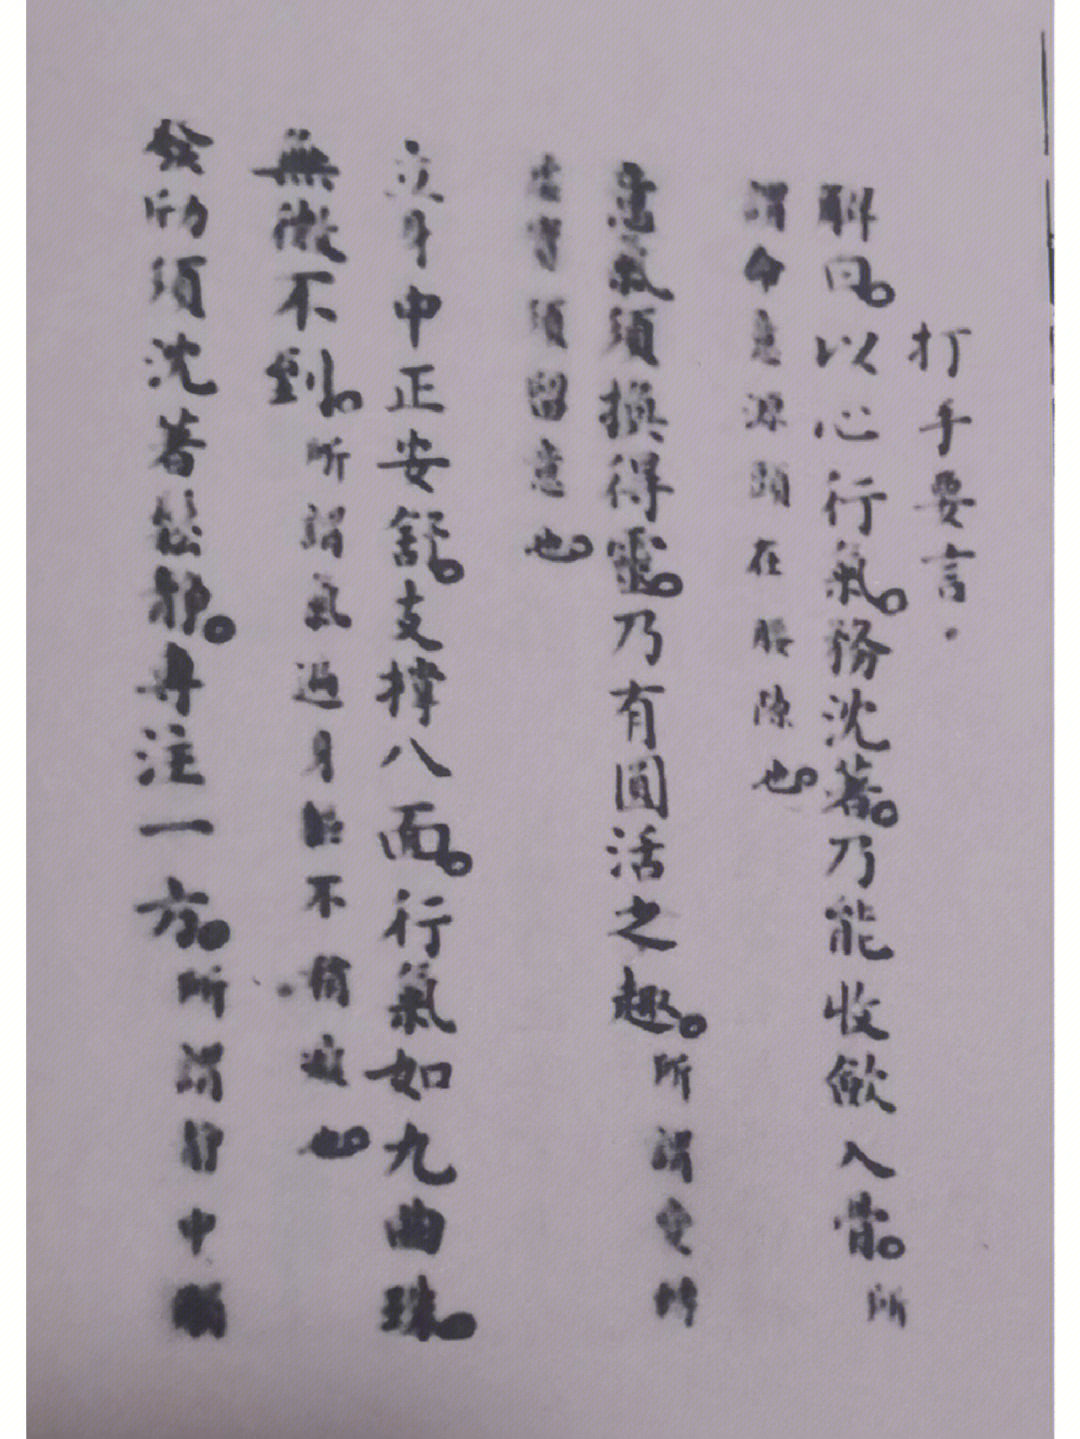 打手要言。
解曰。以心行氣。務沈著。乃能收斂入骨。所
謂命意源頭在腰隙也。
意氣須換得靈。乃有圓活之趣。所謂變轉
虛實須留意也。
立身中正安舒。支撐八面。行氣如九曲珠。
無微不到。所謂氣遍身軀不稍癡也。
發勁須沈著鬆靜。專注一方。所謂靜中觸